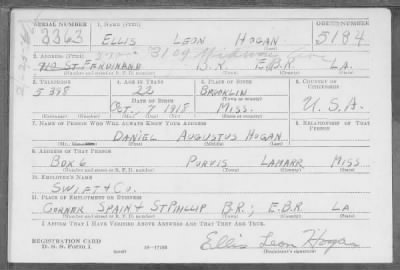 SERIAL NUMBER 1. NAME (Print) ORDER NUMBER
3363 ELLIS LEON HOGAN 5184
2. ADDRESS (Print)
3109
ST FERDINAND B.R. E.B.R. LA.
(Number and street or R. F. D. number) (Town) (County) (State)
3. TELEPHONE 4. AGE IN YEARS 5. PLACE OF BIRTH 6. COUNTRY OF CITIZENSHIP
5398 22 BROOKLIN
DATE OF BIRTH (Town or county)
OCT. 7 1918 MISS. U.S.A.
(Exchange) (Number) (Mo.) (Day) (Yr.) (State or country)
7. NAME OF PERSON WHO WILL ALWAYS KNOW YOUR ADDRESS 8. RELATIONSHIP OF THAT PERSON
DANIEL AUGUSTUS HOGAN
(Mr., Mrs., Miss) (First) (Middle) (Last)
9. ADDRESS OF THAT PERSON
BOX 6 PURVIS LAMARR MISS
(Number and street or R. F. D. number) (Town) (County) (State)
10. EMPLOYER'S NAME
SWIFT & CO.
11. PLACE OF EMPLOYMENT OR BUSINESS
CORNER SPAIN & ST PHILLIP B.R. E.B.R LA
(Number and street or R. F. D. number) (Town) (County) (State)
I AFFIRM THAT I HAVE VERIFIED ABOVE ANSWERS AND THAT THEY ARE TRUE.
REGISTRATION CARD
D. S. S. Form 1 Ellis Leon Hogan
(Registrant's signature)